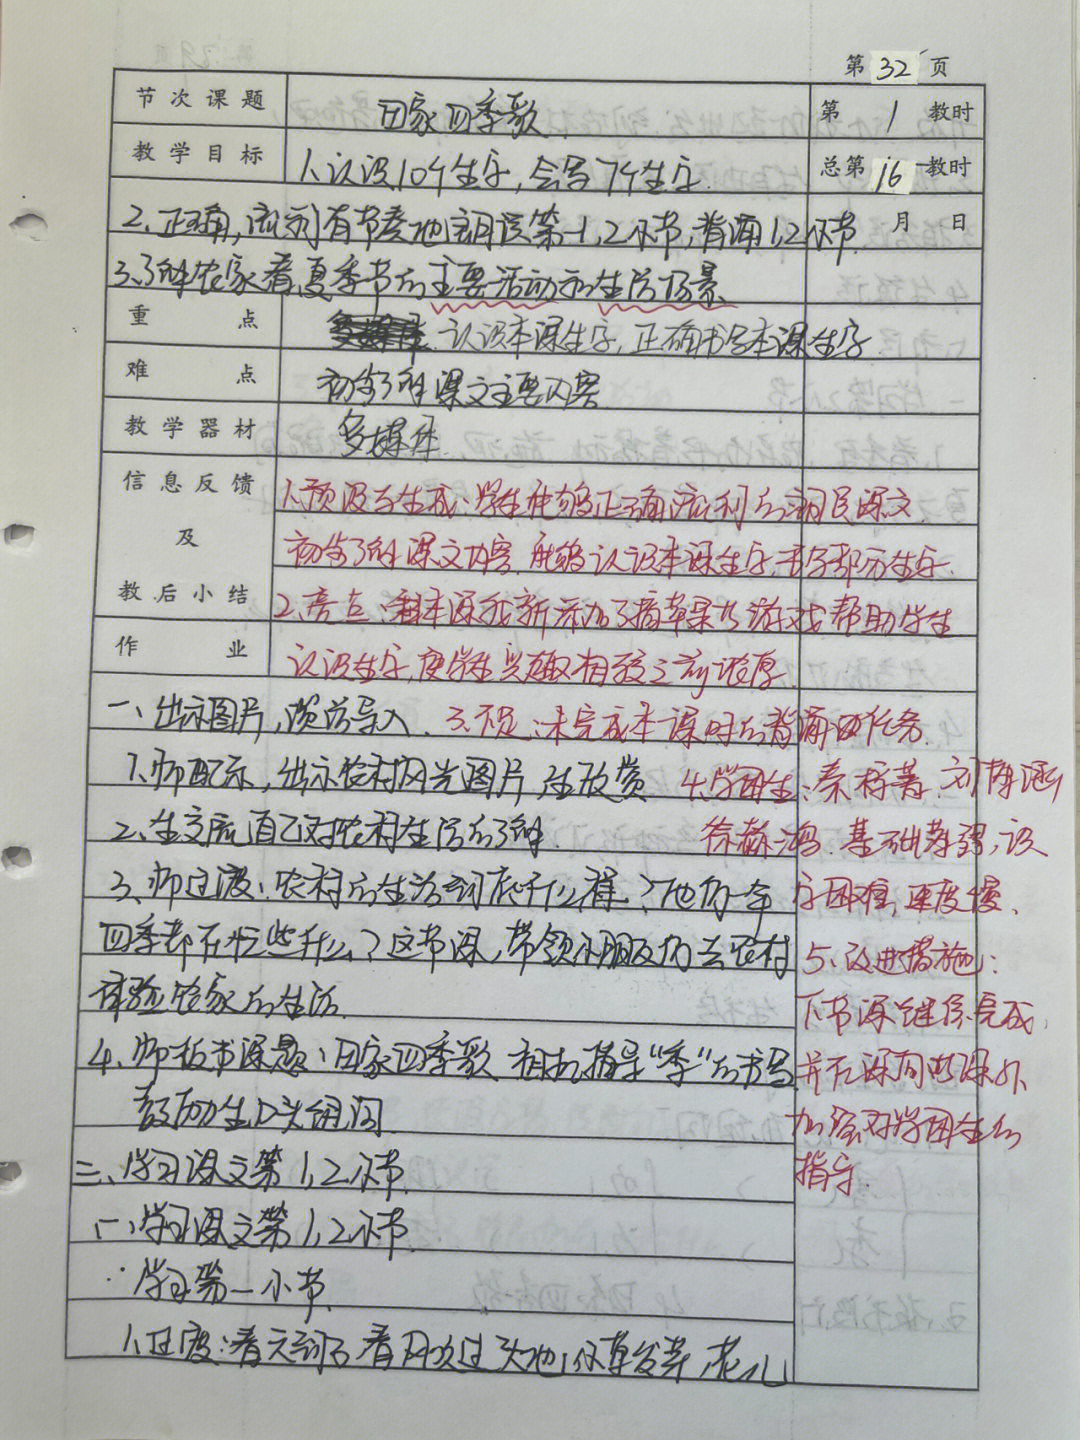 第 32 页
节次课题 田家四季歌 第 1 教时
教学目标 1、认识10个生字，会写7个生字. 总第 16 教时
2、正确，流利有节奏地朗读第一1,2小节，背诵1,2小节. 月 日
3、了解农家春夏季节的主要活动和生活场景
重点 认识本课生字，正确书写本课生字
难点 初步了解课文主要内容
教学器材 多媒体.
信息反馈 1、预设与生成：学生能够正确流利的朗读课文
及 初步了解课文内容.能够认识本课生字,书写部分生字.
教后小结 2、亮点：本课我新添加了摘苹果的游戏帮助学生
作业 认识生字,使学生兴趣相较之前浓厚
一、出示图片，谈话导入. 3、不足：未完成本课时的背诵任务.
1、师配乐，出示农村风光图片，生欣赏 4、学困生：秦梓菁.刘博涵
2、生交流自己对农村生活的了解. 徐赫鸿.基础薄弱,识
3、师过渡：农村的生活到底什么样？他们一年 字困难,速度慢、
四季都在忙些什么？这节课，带领小朋友们去农村 5、改进措施：
体验农家的生活. 下节课继续完成,
4、师板书课题：田家四季歌 相机指导“季”的书写 并在课间或课外
鼓励生口头组词. 加强对学困生的
二、学习课文第1,2小节. 指导.
一、学习课文第1,2小节.
学习第一小节.
1、过度：春天到了 春风吹过大地，小草发芽，花儿